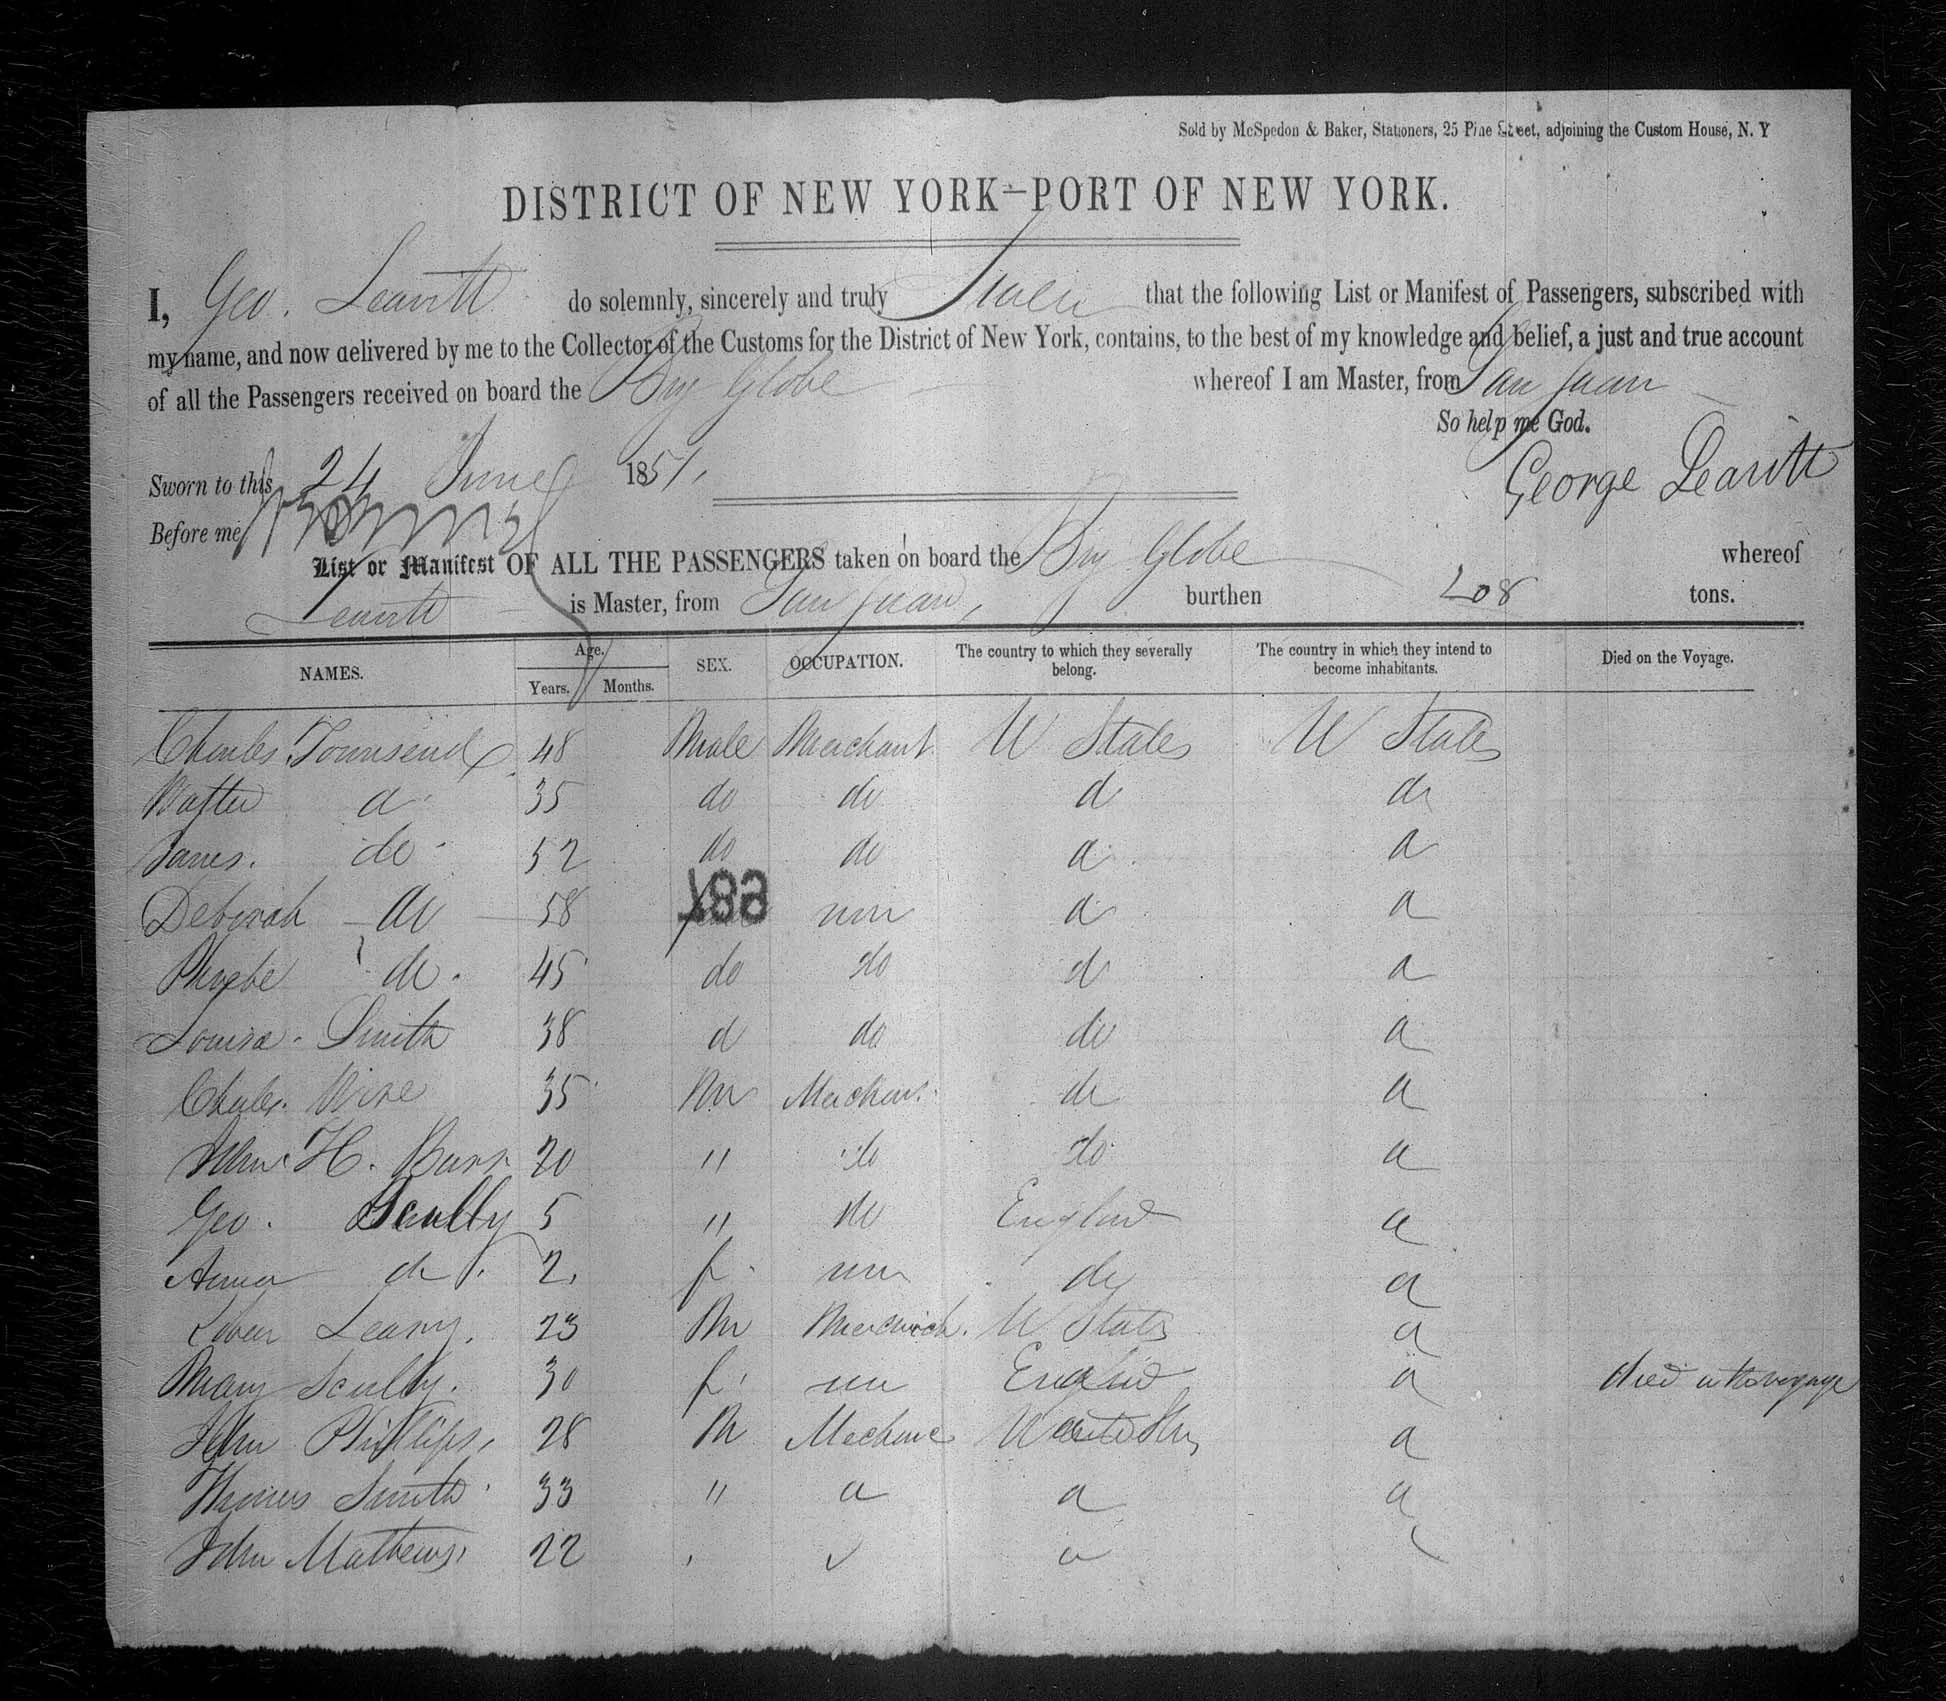 Sold by McSpedon & Baker, Stationers, 25 Pine Street, adjoining the Custom House, N. Y
DISTRICT OF NEW YORK—PORT OF NEW YORK.
I, Geo. Leavitt do solemnly, sincerely and truly Swear that the following List or Manifest of Passengers, subscribed with
my name, and now delivered by me to the Collector of the Customs for the District of New York, contains, to the best of my knowledge and belief, a just and true account
of all the Passengers received on board the Brig Globe whereof I am Master, from San Juan
So help me God.
Sworn to this 24 June 1851,
George Leavitt
Before me
List or Manifest OF ALL THE PASSENGERS taken on board the Brig Globe whereof
Leavitt is Master, from San Juan, burthen 208 tons.
NAMES. Age. Years. Months. SEX. OCCUPATION. The country to which they severally belong. The country in which they intend to become inhabitants. Died on the Voyage.
Charles Townsend 48 Male Merchant U States U States
Walter d 35 do do d do
James. do 52 do do d d
Deborah do 58 689 d d
Phoebe do. 45 do do d d
Louisa Smith 38 d do do d
Charles. Wise 35 M Merchant do d
H. Burr 20 " do do d
Geo. Scully 5 " do England d
Anna do. 2. f do d
Leary. 23 M U States d
Mary Scully. 30 f England d died on the voyage
John Phillips, 28 M Mechanic d
Thomas Smith 33 " d d d
John Mathews, 22